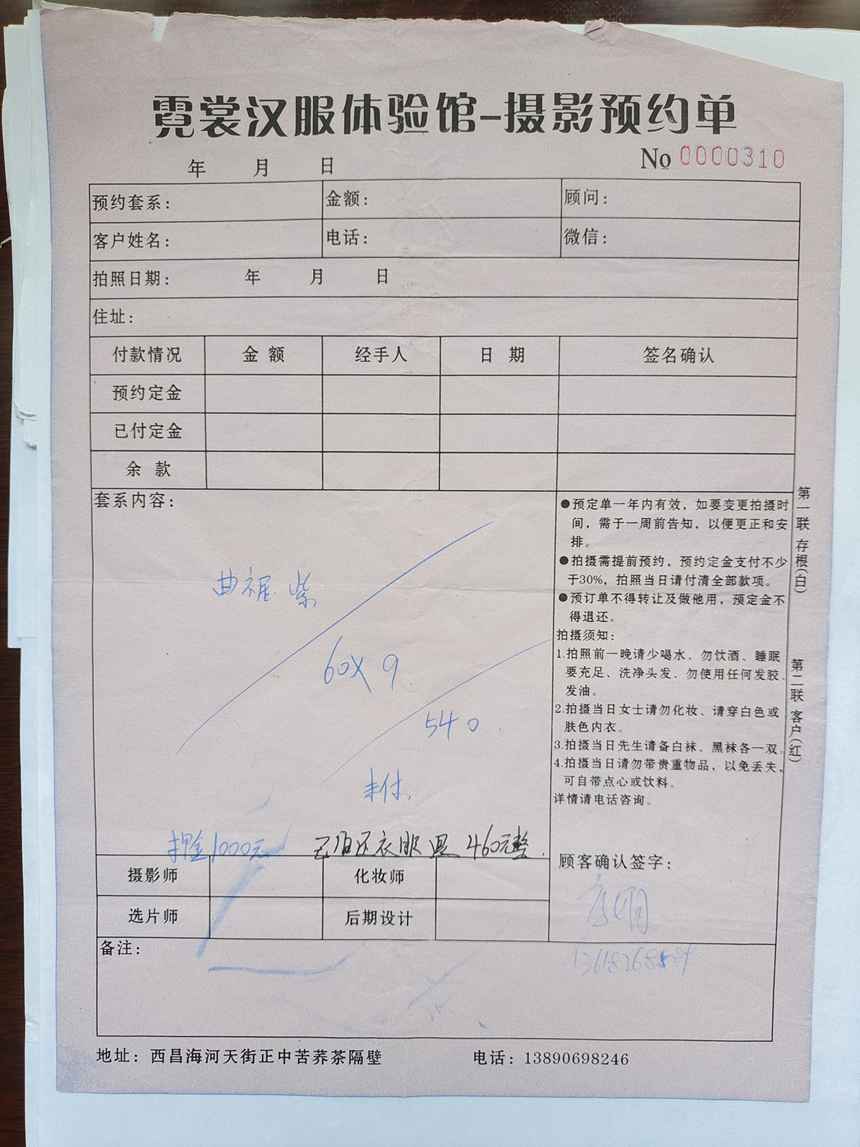 霓裳汉服体验馆-摄影预约单
年 月 日
No 0000310
预约套系： 金额： 顾问：
客户姓名： 电话： 微信：
拍照日期： 年 月 日
住址：
付款情况 金 额 经手人 日 期 签名确认
预约定金
已付定金
余 款
套系内容：
曲裾 紫
60X9
540
未付
押金1000元
衣服 退 460元整
●预定单一年内有效，如要变更拍摄时
间，需于一周前告知，以便更正和安
排。
●拍摄需提前预约，预约定金支付不少
于30%，拍照当日请付清全部款项。
●预订单不得转让及做他用，预定金不
得退还。
拍摄须知：
1.拍照前一晚请少喝水、勿饮酒、睡眠
要充足、洗净头发、勿使用任何发胶、
发油。
2.拍摄当日女士请勿化妆、请穿白色或
肤色内衣。
3.拍摄当日先生请备白袜、黑袜各一双。
4.拍摄当日请勿带贵重物品，以免丢失，
可自带点心或饮料。
详情请电话咨询。
顾客确认签字：
第一联 存根(白)
第二联 客户(红)
摄影师 化妆师
选片师 后期设计
备注：
地址：西昌海河天街正中苦荞茶隔壁 电话：13890698246